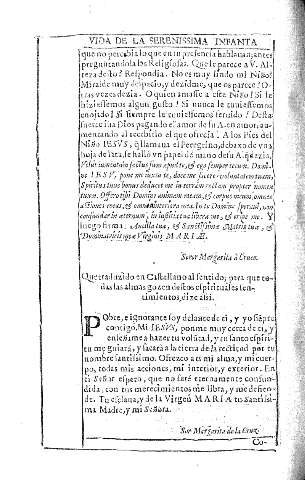 VIDA DE LA SERENISSIMA INFANTA
que no percebia lo que en su presencia hablauan; antes
preguntandola los Religiosas. Que le parece a V. Al-
teza desto? Respondia. No es muy lindo mi Niño?
Miralde muy despacio, y dezidme, que os parece? O-
tras vezes dezia. O quien amasse a este Niño! Si le
hiziessemos algun gusto! Si nunca le tuuiessemos
enojado! Si siempre le tuuiessemos seruido?
suerte iua Dios pagando el amor de su A. en amor, au-
mentando al tercio el que ofrecia. A los Pies del
Niño IESVS, q̃ llamaua el Peregrino, debaxo de vna
hoja de lata, se halló vn papel de mano de su A. q̃ dezia.
Velut iumentum factus sum apud te, & ego semper tecum. Domi-
ne IESV, pone me iuxta te, doce me facere voluntatem tuam,
Spiritus tuus bonus deducet me in terram rectam propter nomen
tuum. Offero tibi Domine animam meam, & corpus meum, omnes
actiones meas, & omnia interiora mea. In te Domine speraui, non
confundar in aeternum, in iustitia tua libera me, & eripe me. Y
luego firma; Ancilla tua, & Sanctissimæ Matris tuæ, &
Dominæ meæ Virginis MARIÆ.
Soror Margarita à Cruce.
Que traduzido en Castellano al sentido, para que to-
das las almas gozen destos espirituales sen-
timientos, dize assi.
POBRE, e ignorante soy delante de ti, y yo siẽpre
contigo. Mi IESVS, ponme muy cerca de ti, y
enseñame a hazer tu volũtad, y tu santo espiri-
tu me guiará, y sacará a la tierra de la rectitud por tu
nombre santissimo. Ofrezco a ti mi alma, y mi cuer-
po, todas mis acciones, mi interior, y exterior. En
ti Señor espero, que no seré eternamente confun-
dida, con tus merecimientos me libra, y me defien-
de. Tu esclaua, y de la Virgen MARIA tu Santissi-
ma Madre, y mi Señora.
Sor Margarita de la Cruz.
Co-